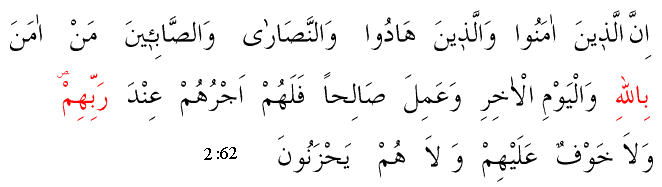 اِنَّ الَّذ۪ينَ اٰمَنُوا وَالَّذ۪ينَ هَادُوا وَالنَّصَارٰى وَالصَّابِـ۪ٔينَ مَنْ اٰمَنَ
بِاللّٰهِ وَالْيَوْمِ الْاٰخِرِ وَعَمِلَ صَالِحاً فَلَهُمْ اَجْرُهُمْ عِنْدَ رَبِّهِمْۖ
وَلَا خَوْفٌ عَلَيْهِمْ وَلَا هُمْ يَحْزَنُونَ 2:62